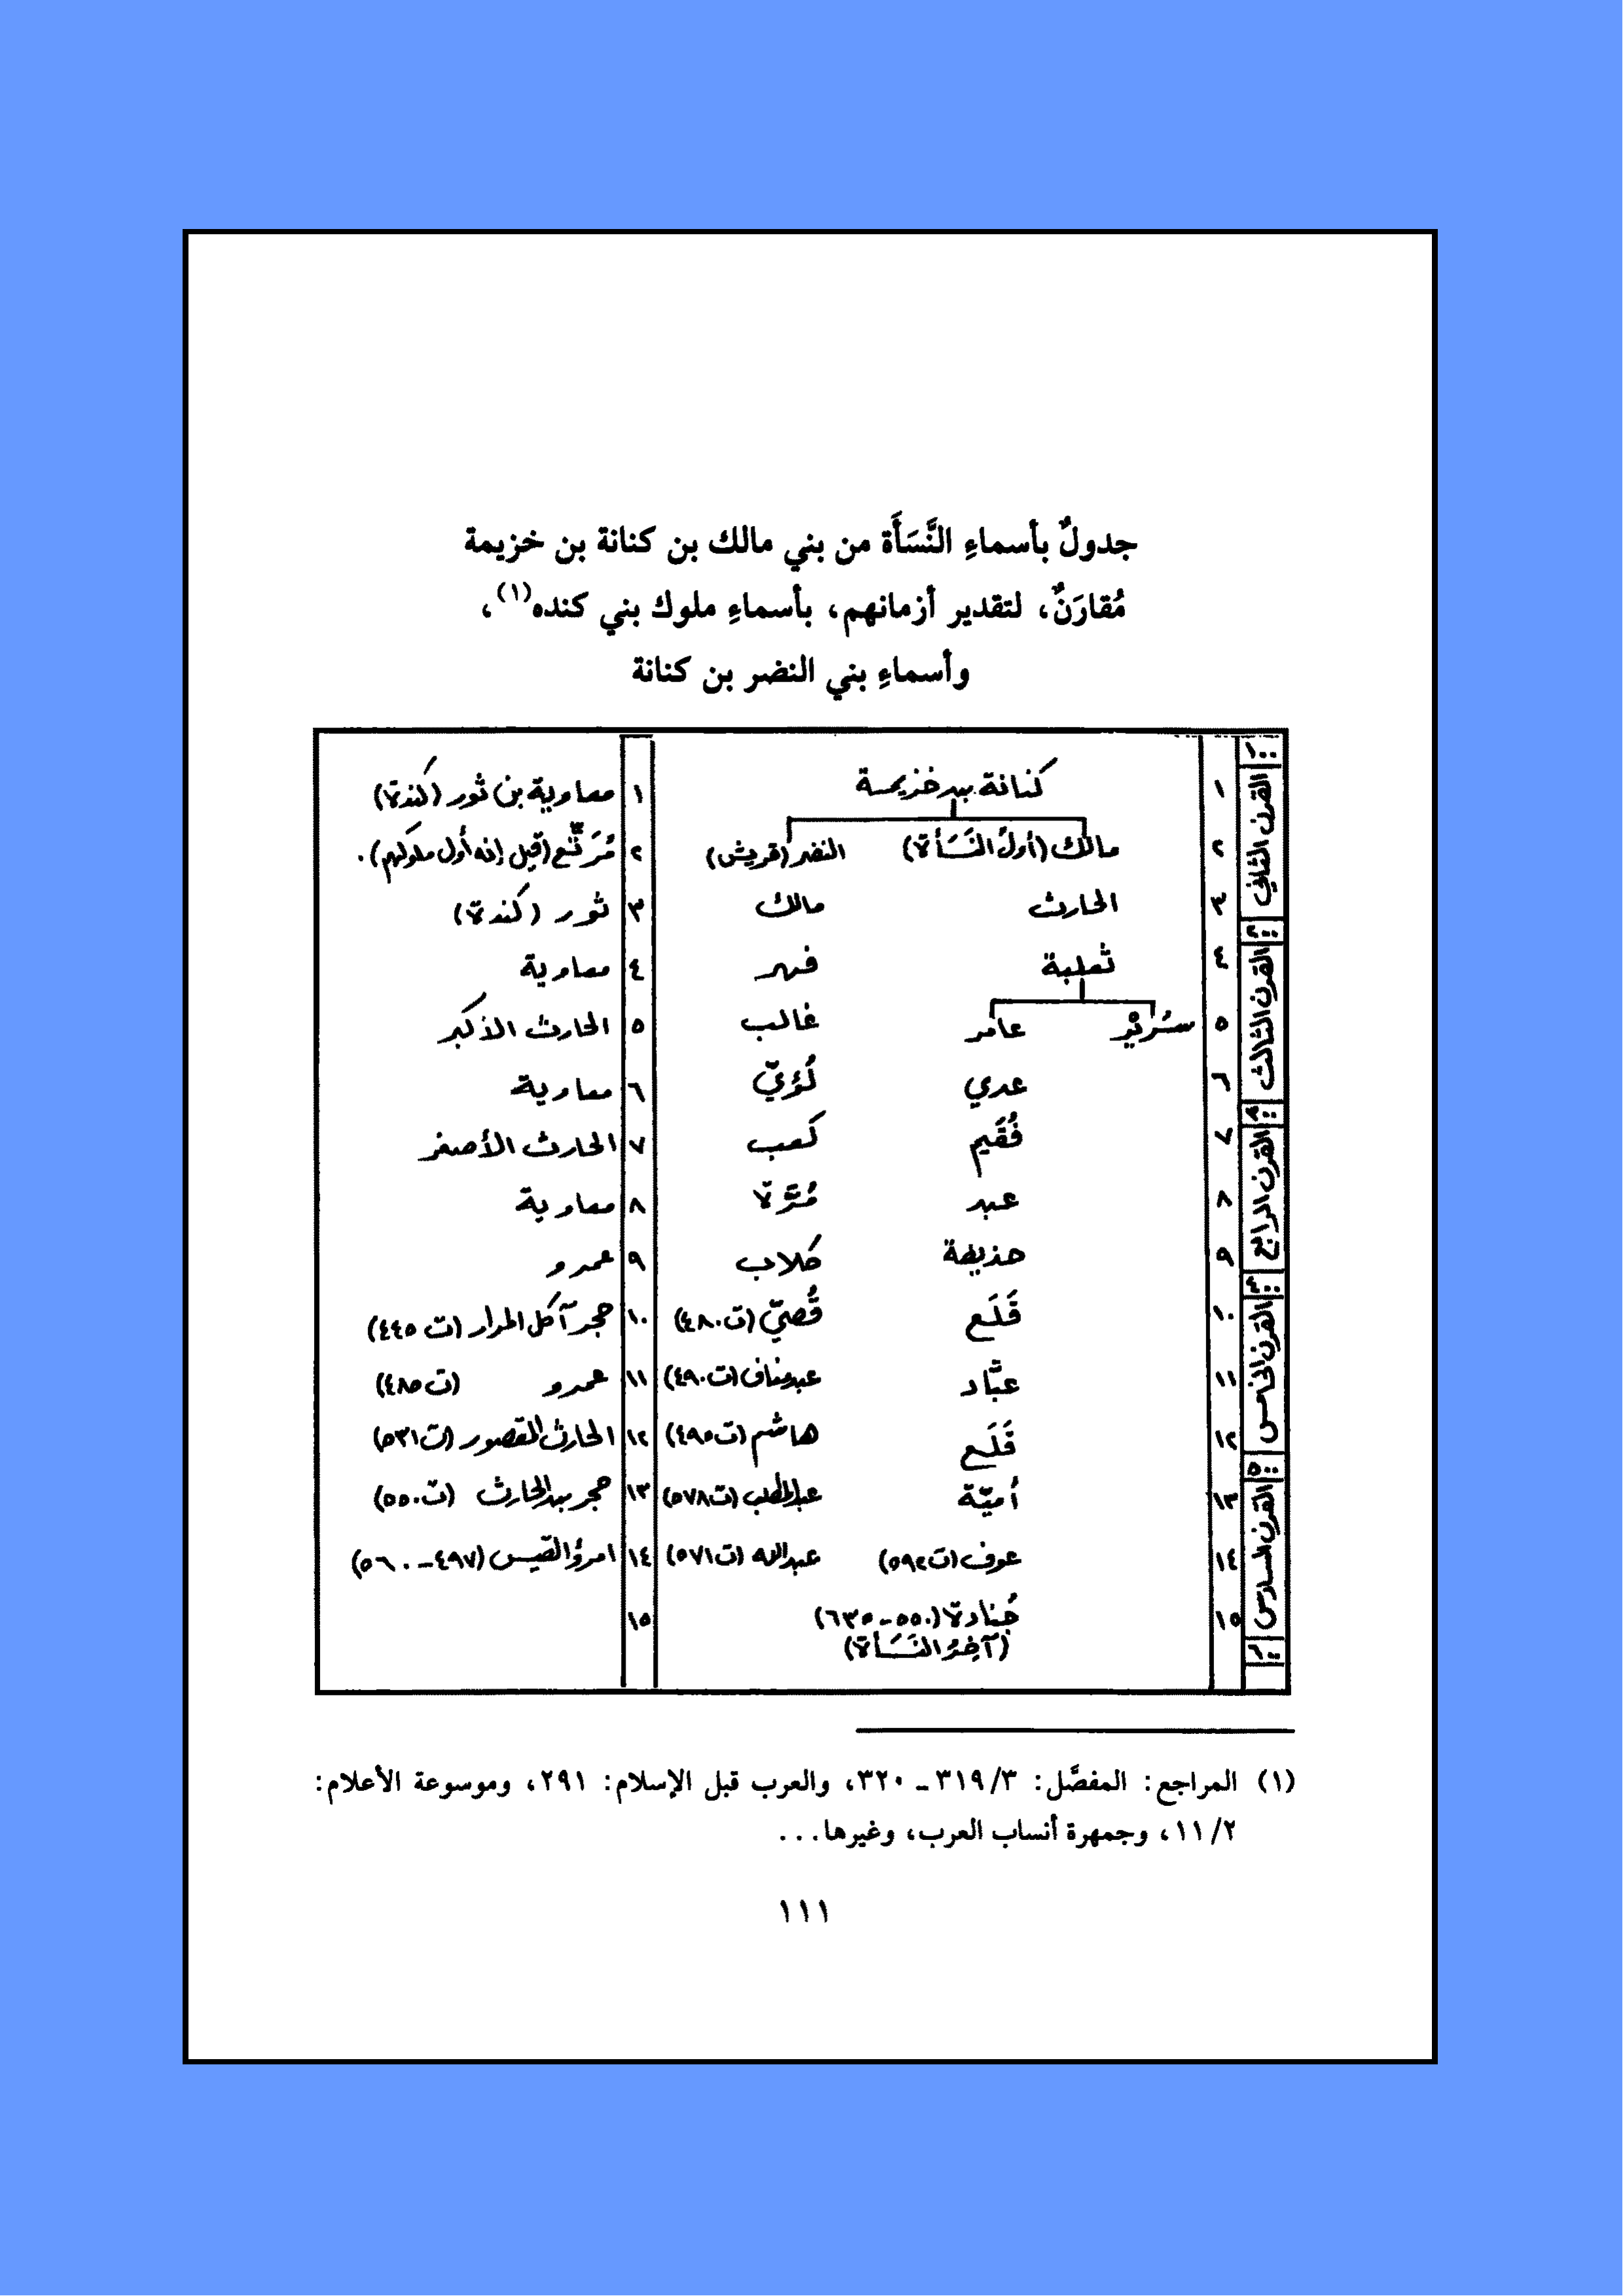 جدولٌ بأسماءِ النَّسَأَة من بني مالك بن كنانة بن خزيمة
مُقارَنٌ، لتقدير أزمانهم، بأسماءِ ملوك بني كنده(١)،
وأسماءِ بني النضر بن كنانة
١٠٠
القرن الثاني
٢٠٠
القرن الثالث
٣٠٠
القرن الرابع
٤٠٠
القرن الخامس
٥٠٠
القرن السادس
٦٠٠
١ كنانة بن خزيمة ١ معاوية بن ثور (كندة)
٢ مالك (أولُ النَسَأة) النضر (قريش) ٢ مُرَتِّع (قيل إنه أول ملوكهم).
٣ الحارث مالك ٣ ثور (كندة)
٤ ثعلبة فهر ٤ معاوية
٥ سُرَيْر عامر غالب ٥ الحارث الأكبر
٦ عدي لُؤيّ ٦ معاوية
٧ فُقَيم كعب ٧ الحارث الأصغر
٨ عبد مُرَّة ٨ معاوية
٩ حذيفة كلاب ٩ عمرو
١٠ قَلَع قُصيّ (ت ٤٨٠) ١٠ حجر آكل المرار (ت ٤٤٥)
١١ عبَّاد عبد مناف (ت ٤٩٠) ١١ عمرو (ت ٤٨٥)
١٢ قَلَع هاشم (ت ٤٩٥) ١٢ الحارث المقصور (ت ٥٣١)
١٣ أميّة عبد المطلب (ت ٥٧٨) ١٣ حجر بن الحارث (ت ٥٥٠)
١٤ عوف (ت ٥٩٢) عبد الله (ت ٥٧١) ١٤ امرؤ القيس (٤٩٧ - ٥٦٠)
١٥ جُنادة (٥٥٠ - ٦٣٥) ١٥
(آخِرُ النَسَأة)
(١) المراجع: المفصَّل: ٣/٣١٩ ـ ٣٢٠، والعرب قبل الإسلام: ٢٩١، وموسوعة الأعلام:
٢/١١، وجمهرة أنساب العرب، وغيرها...
١١١